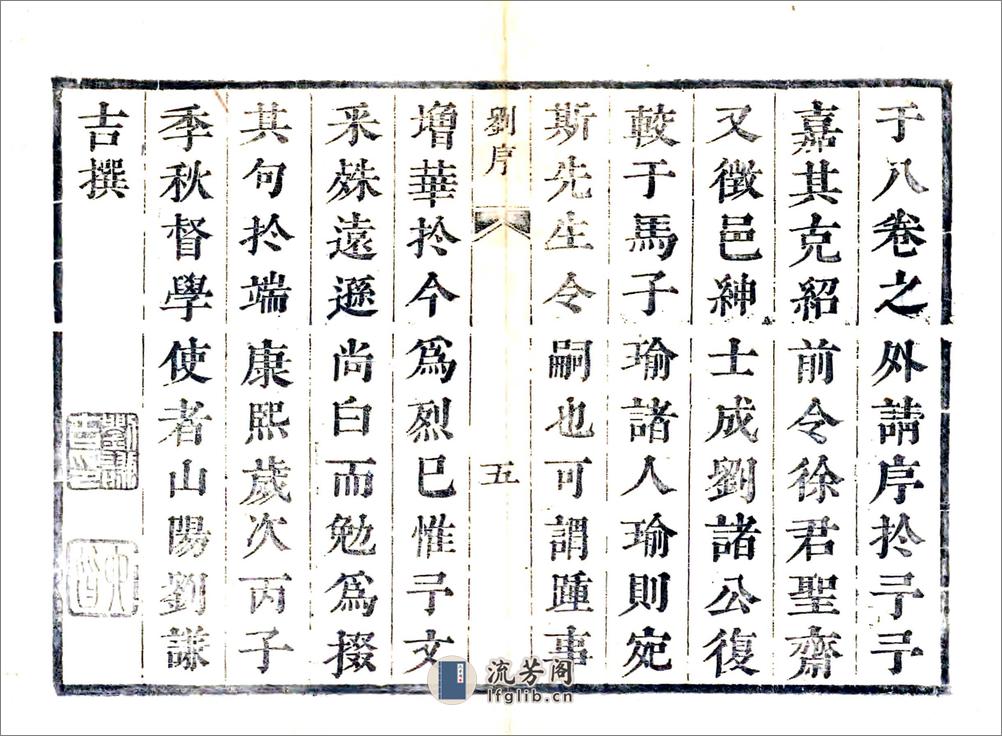 于八卷之外請序扵予予
嘉其克紹前令徐君聖齋
又徵邑紳士成劉諸公復
較于馬子瑜諸人瑜則宛
斯先生令嗣也可謂踵事
劉序
五
增華扵今爲烈已惟予文
采殊遠遜尚白而勉爲掇
其句扵端康熙歲次丙子
季秋督學使者山陽劉謙
吉撰
流芳阁
lfglib.cn